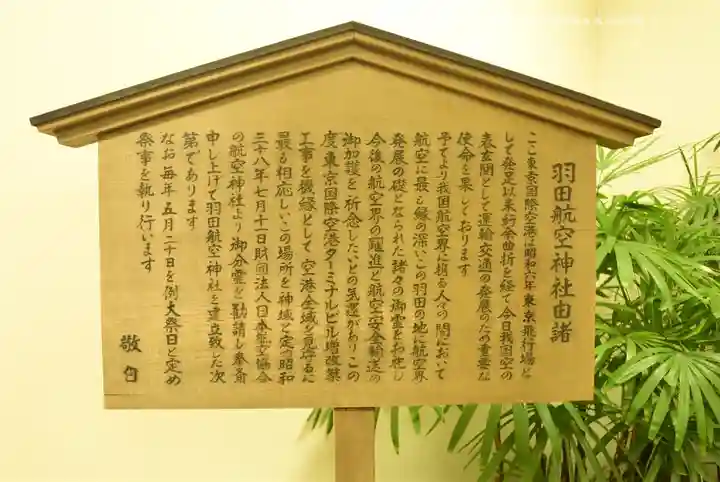 羽田航空神社由諸
ここ東京国際空港は昭和六年東京飛行場と
して発足以来紆余曲折を経て今日我国空の
表玄関として運輸交通の発展のため重要な
使命を果しております
予てより我国航空界に携る人々の間において
航空に最も縁の深いこの羽田の地に航空界
発展の礎となられた諸々の御霊をお祀し
今後の航空界の躍進と航空安全輸送の
御加護を祈念したいとの気運があり、この
度、東京国際空港ターミナルビル増改築
工事を機縁として空港全域を見守るに
最も相応しいこの場所を神域と定め昭和
三十八年七月十一日財団法人日本航空協会
の航空神社より御分霊を勧請し奉斎
申し上げて羽田航空神社を建立致した次
第であります
なお毎年五月二十日を例大祭日と定め
祭事を執り行います
敬白